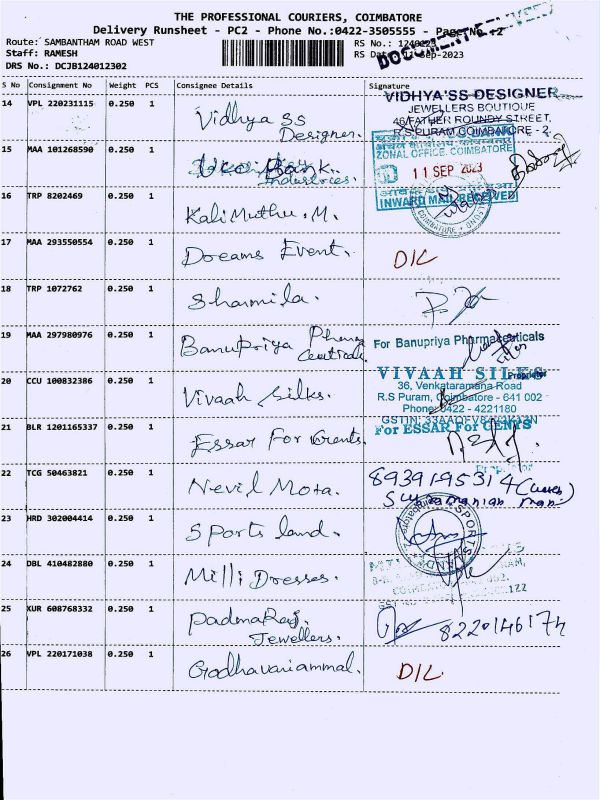 THE PROFESSIONAL COURIERS, COIMBATORE
Delivery Runsheet - PC2 - Phone No.:0422-3505555 - Page No. :2
Route: SAMBANTHAM ROAD WEST
Staff: RAMESH
DRS No.: DCJB124012302
RS No.:
RS Date: 11-Sep-2023
S No Consignment No Weight PCS Consignee Details Signature
14 VPL 220231115 0.250 1 Vidhya SS Designer.
VIDHYA'SS DESIGNER
JEWELLERS BOUTIQUE
46/FATHER ROUNDY STREET,
R.S.PURAM,COIMBATORE - 2.
15 MAA 101268590 0.250 1 Uco Bank.
ZONAL OFFICE, COIMBATORE
11 SEP 2023
INWARD MAIL RECEIVED
16 TRP 8202469 0.250 1 Kali Muthu. M.
17 MAA 293550554 0.250 1 Dreams Event. D/L
18 TRP 1072762 0.250 1 Sharmila.
19 MAA 297980976 0.250 1 Banupriya Pharma Ceuticals
For Banupriya Pharmaceuticals
Proprietor
20 CCU 100832386 0.250 1 Vivaah Silks.
VIVAAH SILKS
36, Venkataramana Road
R.S Puram, Coimbatore - 641 002
Phone: 0422 - 4221180
21 BLR 1201165337 0.250 1 Essar For Gents.
For ESSAR For GENTS
22 TCG 50463821 0.250 1 Nevil Mota.
8939195314
23 HRD 302004414 0.250 1 Sports land.
24 DBL 410482880 0.250 1 Milli Dresses.
25 KUR 608768332 0.250 1 PadmaRaj Jewellers.
8220146174
26 VPL 220171038 0.250 1 Godhavariammal. D/L